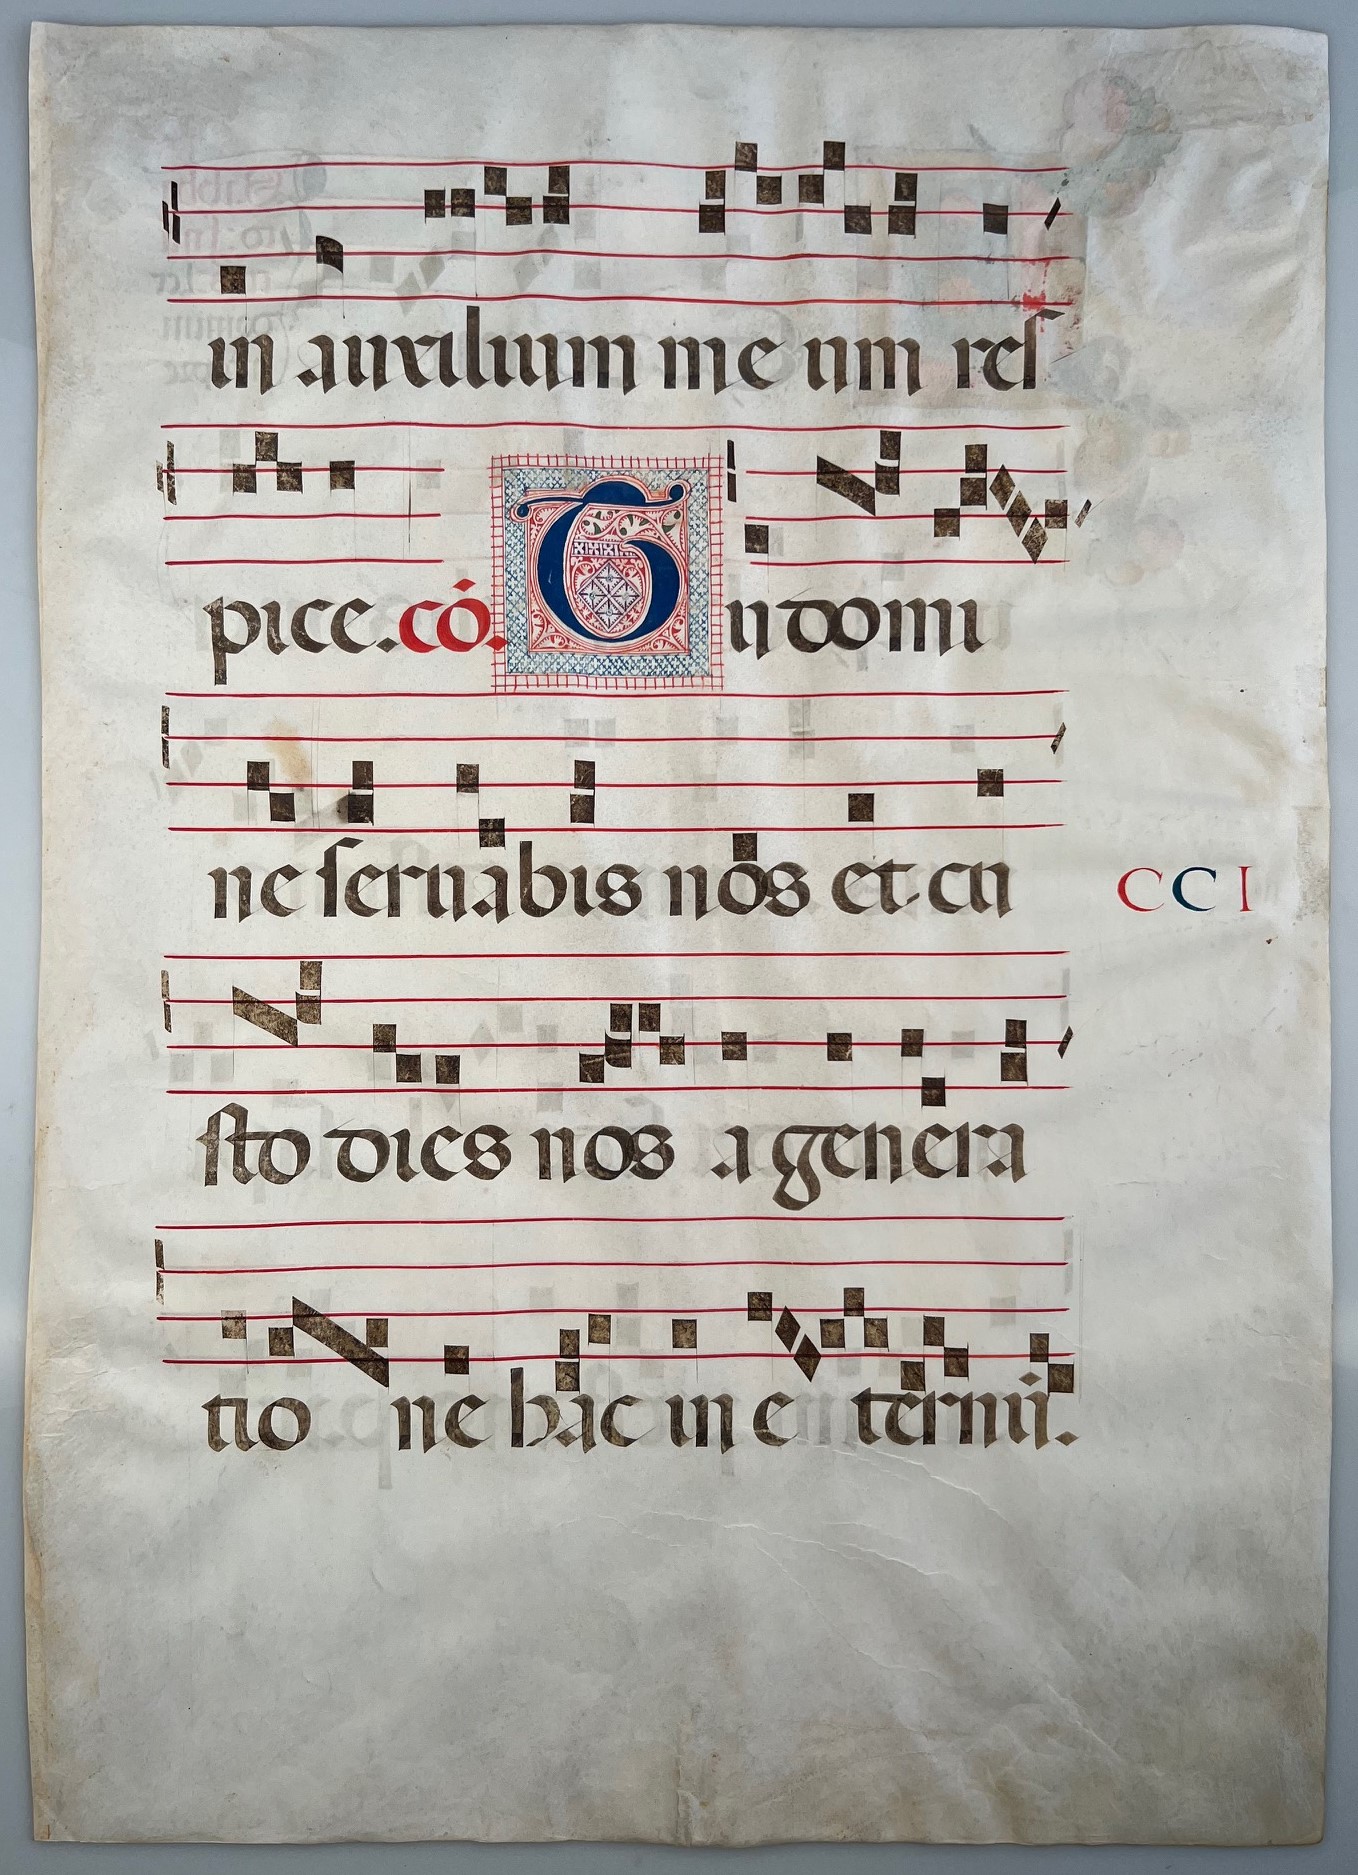 in auxilium me um res
pice. có. Tu domi
ne seruabis nos et cu
sto dies nos a genera
tio ne hac in e ternũ.
CCI